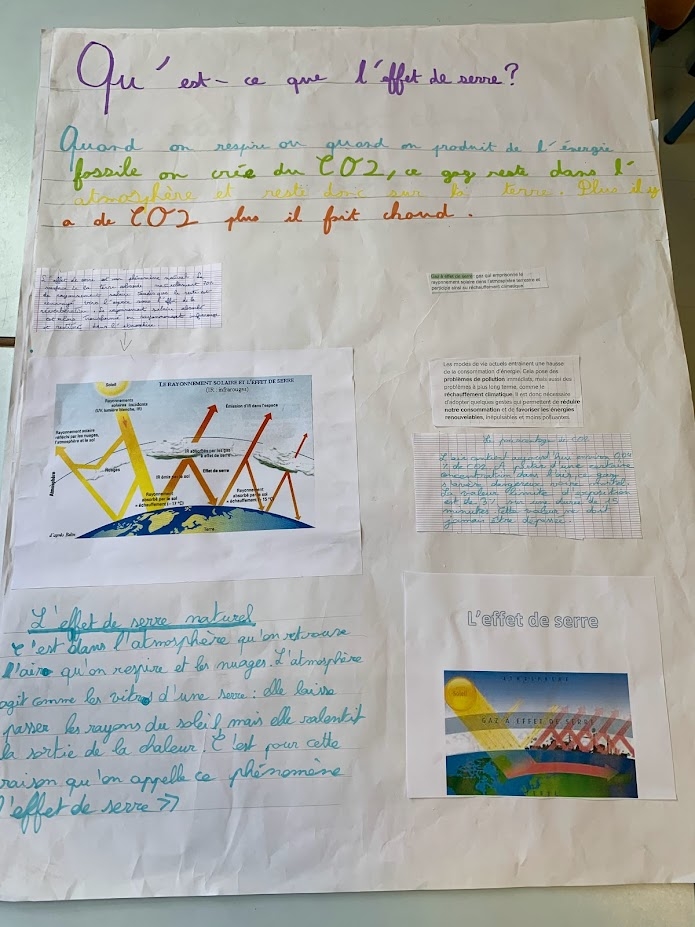 Qu'est-ce que l'effet de serre?
Quand on respire ou quand on produit de l'énergie
fossile on crée du CO2, ce gaz reste dans l'
atmosphère et reste donc sur la terre. Plus il y
a de CO2 plus il fait chaud.
L'effet de serre est un phénomène naturel. La
surface de la terre absorbe naturellement 70%
du rayonnement solaire tandis que le reste est
vers l'espace sous l'effet de la
réverbération. Le rayonnement solaire absorbé
est transformé en rayonnements infrarouge
et restitué dans l'atmosphère
Gaz à effet de serre: gaz qui emprisonne le
rayonnement solaire dans l'atmosphère terrestre et
participe ainsi au réchauffement climatique.
LE RAYONNEMENT SOLAIRE ET L'EFFET DE SERRE
(IR : infrarouges)
Soleil
Rayonnements
solaires incidents
(UV, lumière blanche, IR)
Émission d'IR dans l'espace
Rayonnement solaire
réfléchi par les nuages,
l'atmosphère et le sol
IR absorbés par les gaz
à effet de serre
Nuages
IR émis par le sol
Effet de serre
Atmosphère
Rayonnement
absorbé par le sol
+ échauffement (- 17 °C)
Rayonnement
absorbé par le sol
+ échauffement (+ 15 °C)
Terre
d'après Belin
Les modes de vie actuels entraînent une hausse
de la consommation d'énergie. Cela pose des
problèmes de pollution immédiats, mais aussi des
problèmes à plus long terme, comme le
réchauffement climatique. Il est donc nécessaire
d'adopter quelques gestes qui permettent de réduire
notre consommation et de favoriser les énergies
renouvelables, inépuisables et moins polluantes.
Le pourcentage de CO2
L'air contient aujourd'hui environ 0,04
% de CO2. À partir d'une certaine
concentration dans l'air, ce gaz
s'avère dangereux voire mortel.
La valeur limite d'exposition
est de 3% sur une durée de 15
minutes. Cette valeur ne doit
jamais être dépassée.
L'effet de serre naturel
C'est dans l'atmosphère qu'on retrouve
l'air qu'on respire et les nuages. L'atmosphère
agit comme les vitres d'une serre : elle laisse
passer les rayons du soleil, mais elle ralentit
la sortie de la chaleur. C'est pour cette
raison qu'on appelle ce phénomène
l'effet de serre >>
L'effet de serre
ATMOSPHERE
Soleil
GAZ A EFFET DE SERRE